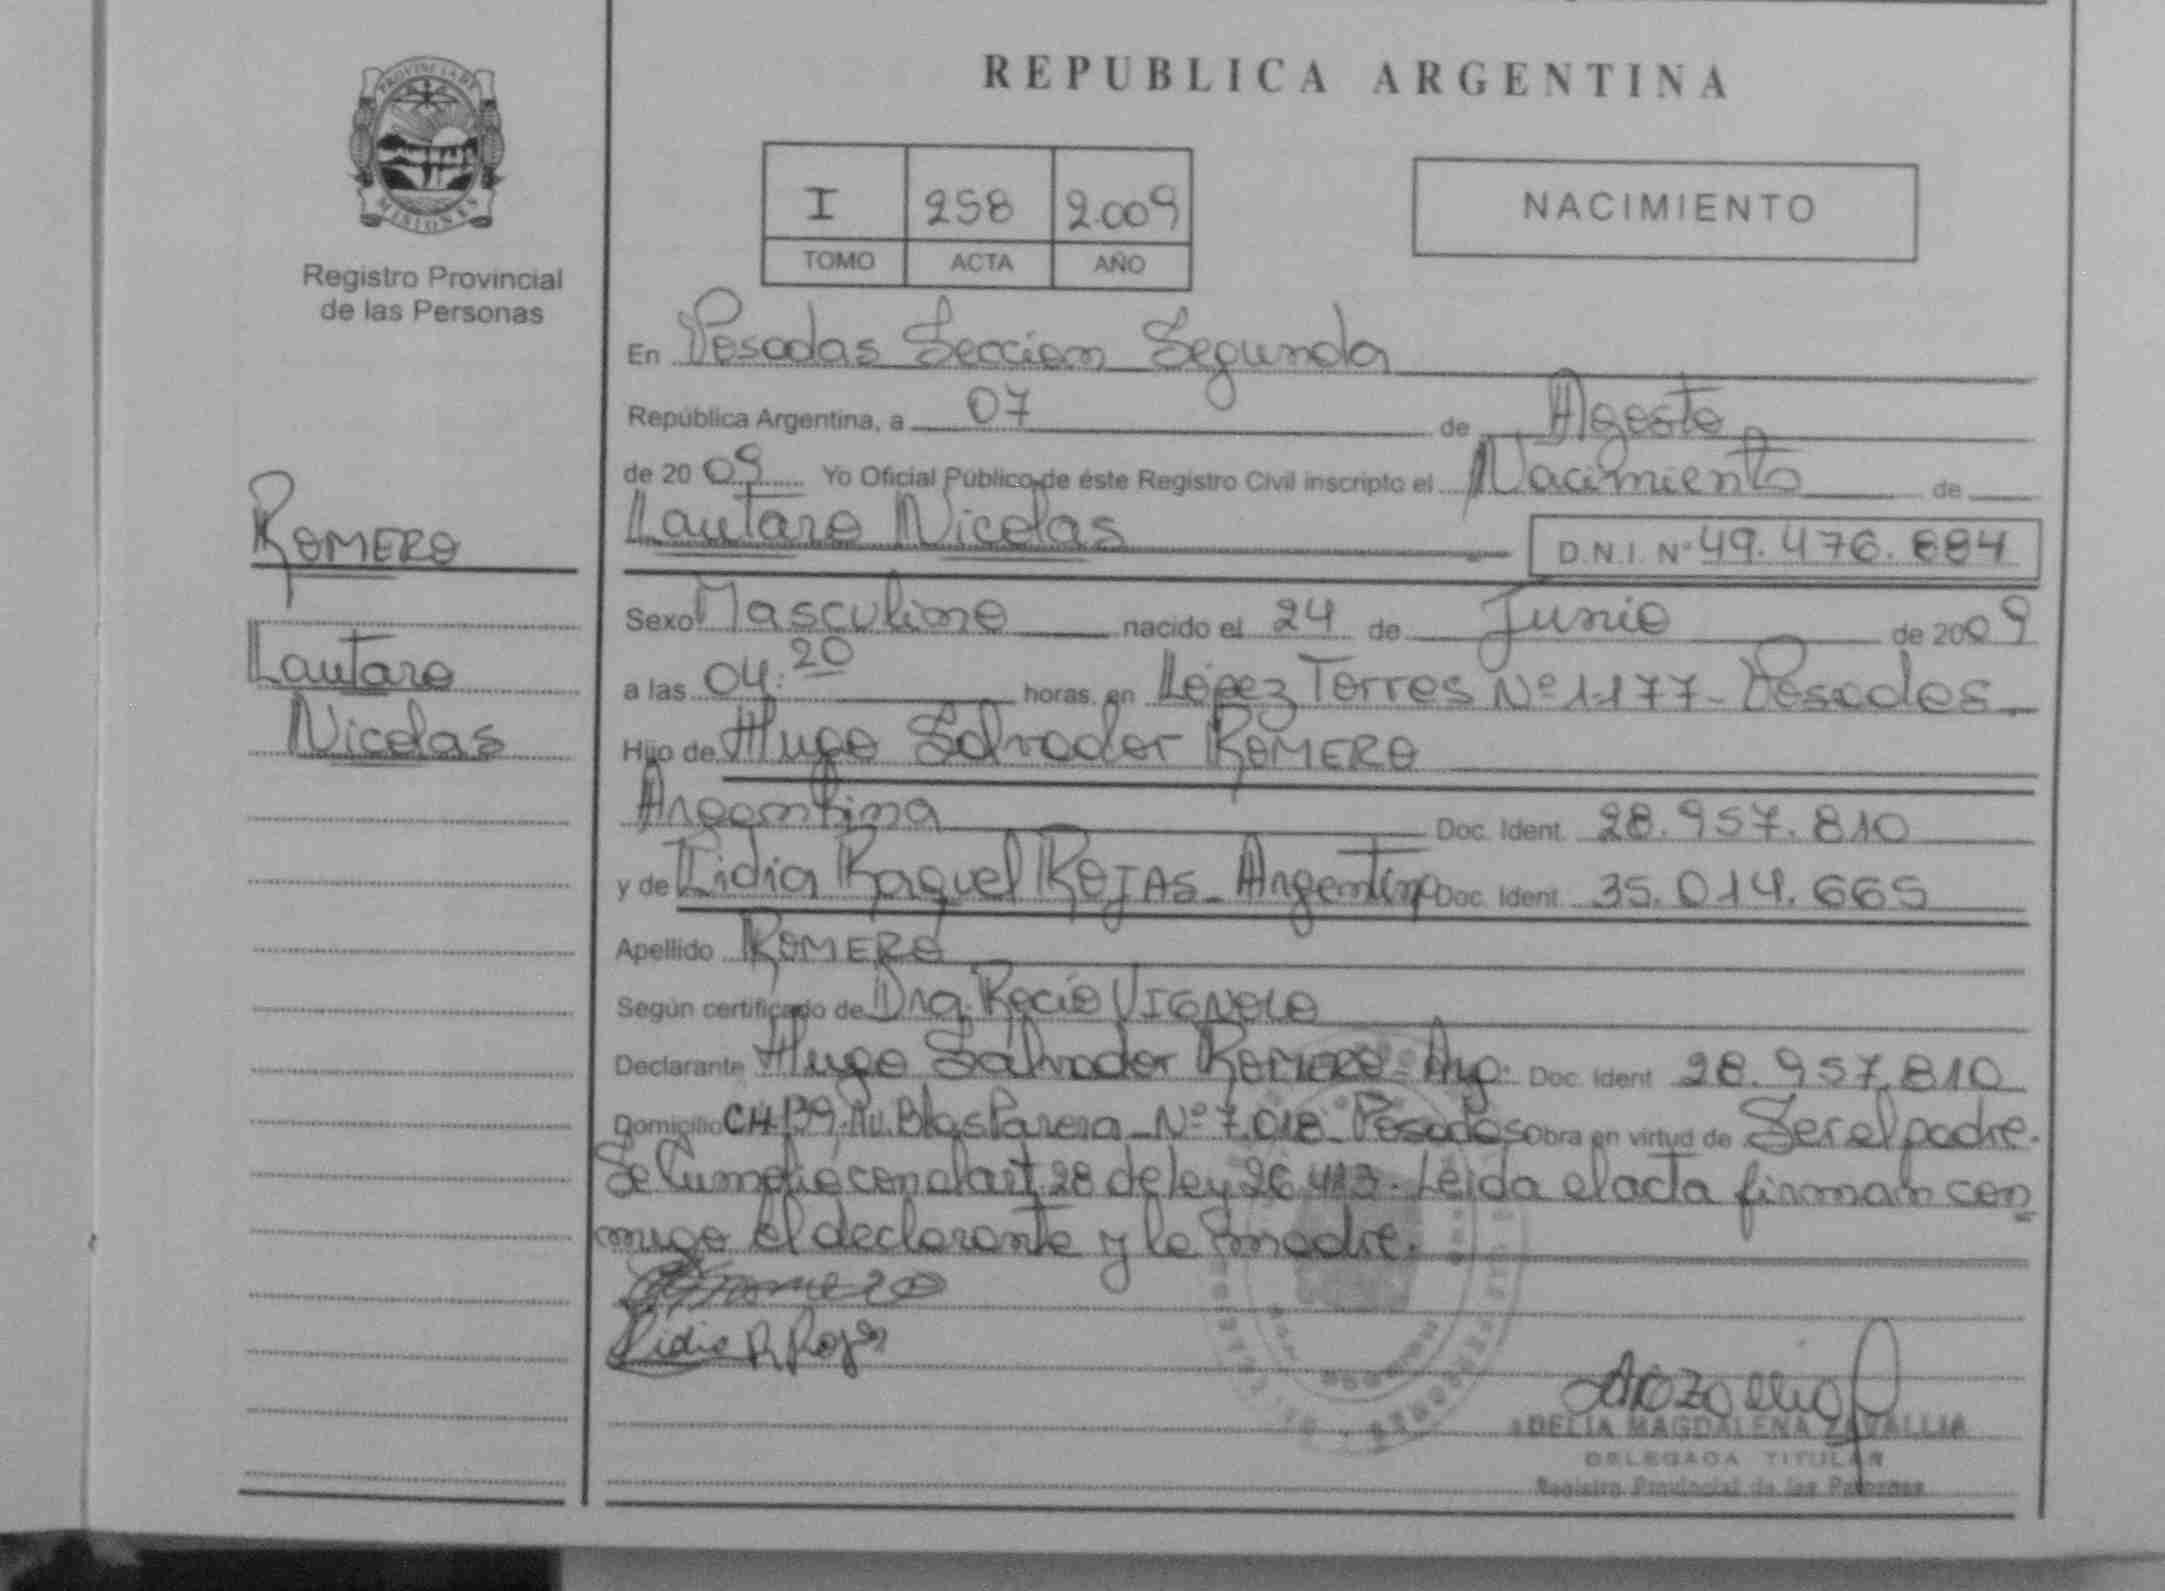 PROVINCIA DE
MISIONES
Registro Provincial
de las Personas
ROMERO
Lautaro
Nicolas
REPUBLICA ARGENTINA
I 258 2.009
TOMO ACTA AÑO
NACIMIENTO
En Posadas Seccion Segunda
República Argentina, a 07 de Agosto
de 2009 Yo Oficial Público de éste Registro Civil inscripto el Nacimiento de
Lautaro Nicolas D.N.I. Nº 49.476.884
Sexo Masculino nacido el 24 de Junio de 2009
a las 04:20 horas en López Torres Nº 1177 - Posadas
Hijo de Hugo Salvador ROMERO
Argentina Doc. Ident. 28.957.810
y de Lidia Raquel ROJAS - Argentina Doc. Ident. 35.014.665
Apellido ROMERO
Según certificado de Dra. Rocio VIGNOLO
Declarante Hugo Salvador ROMERO - Arg. Doc. Ident. 28.957.810
Domicilio CH. 139. Av. Blas Parera - Nº 7.018 - Posadas Obra en virtud de Ser el padre.
Se Cumplio con el art. 28 de ley 26.413. Leida el acta firman con
migo el declarante y la madre.
Romero
Lidia R. Rojas
ADELIA MAGDALENA ZAVALLIA
DELEGADA TITULAR
Registro Provincial de las Personas